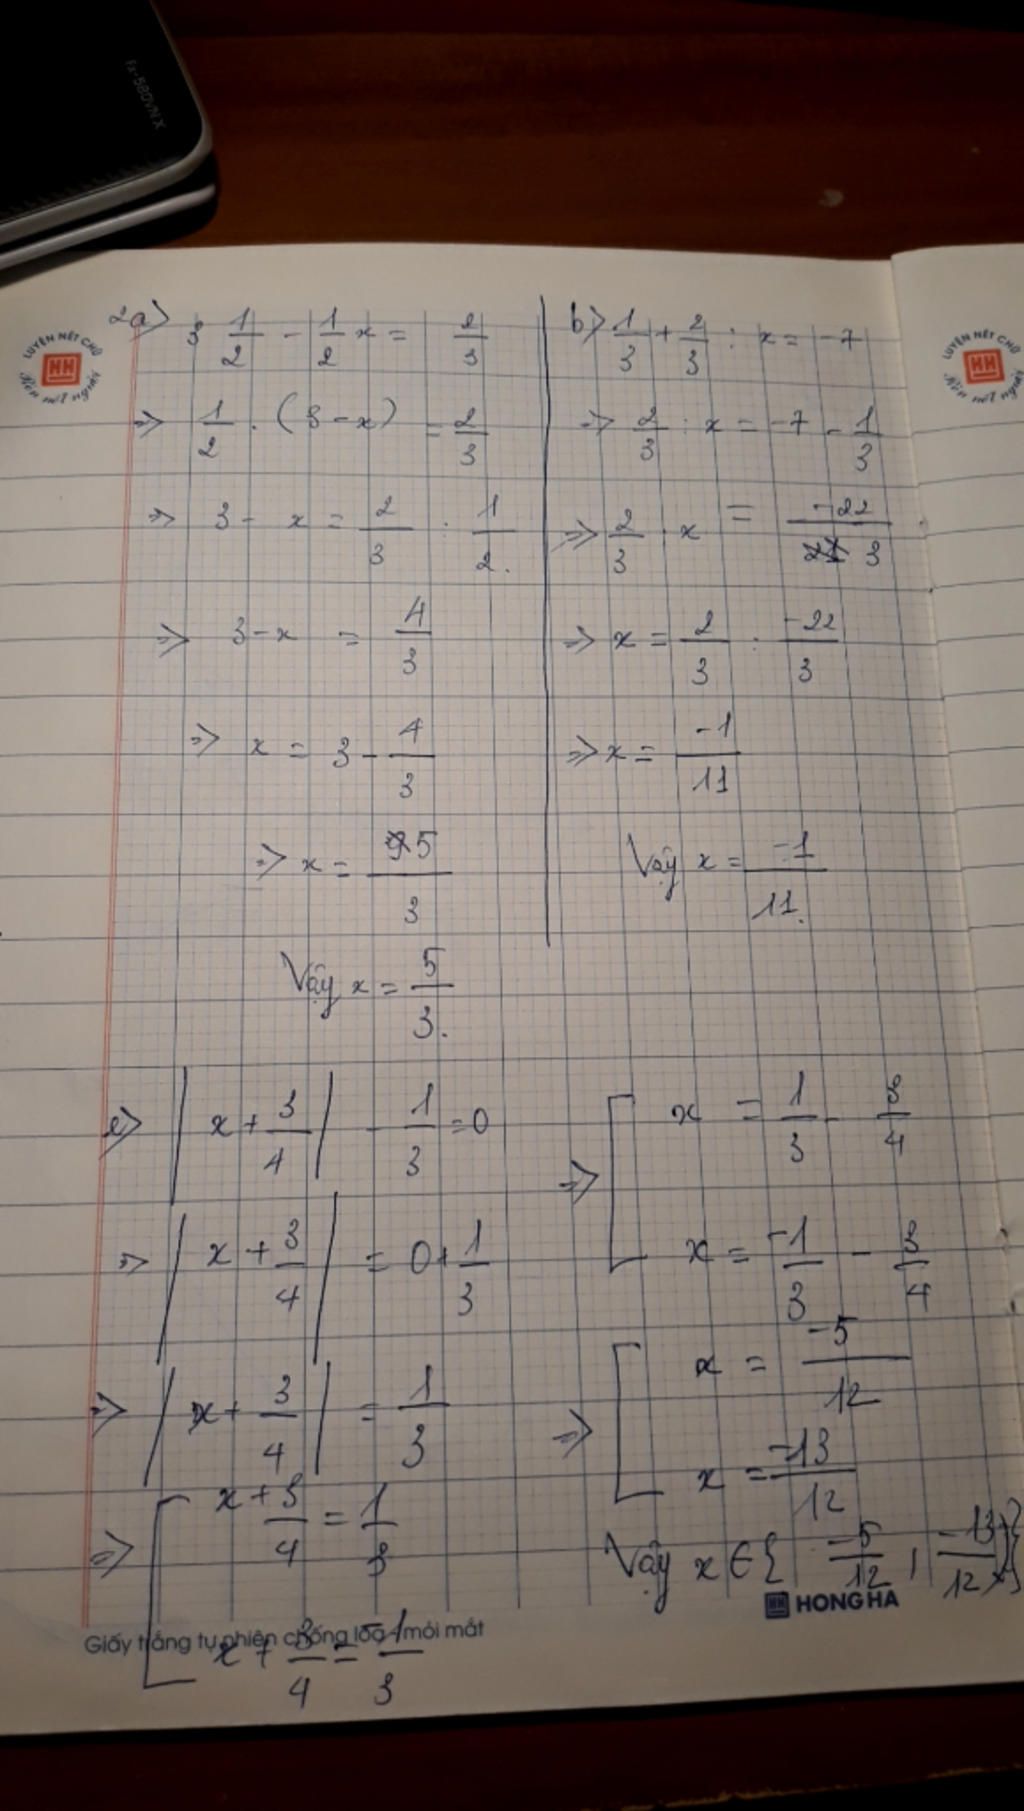 fx-580VN X
LUYỆN NÉT CHỮ
HH
Rèn nết người
2a> 3 1/2 - 1/2 x = 2/3
=> 1/2 . (3 - x) = 2/3
=> 3 - x = 2/3 : 1/2.
=> 3 - x = 4/3
=> x = 3 - 4/3
=> x = 5/3
Vậy x = 5/3.
b> 1/3 + 2/3 : x = -7
=> 2/3 : x = -7 - 1/3
=> 2/3 : x = -22/3
=> x = 2/3 : -22/3
=> x = -1/11
Vậy x = -1/11.
LUYỆN NÉT CHỮ
HH
Rèn nết người
c> | x + 3/4 | - 1/3 = 0
=> | x + 3/4 | = 0 + 1/3
=> | x + 3/4 | = 1/3
=> [ x + 3/4 = 1/3
x + 3/4 = -1/3
=> [ x = 1/3 - 3/4
x = -1/3 - 3/4
=> [ x = -5/12
x = -13/12
Vậy x ∈ { -5/12 , -13/12 }
HH HONG HA
Giấy trắng tự nhiên chống lóa - mỏi mắt